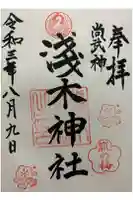 奉拝
尚武神
浅木神社
令和三年八月九日